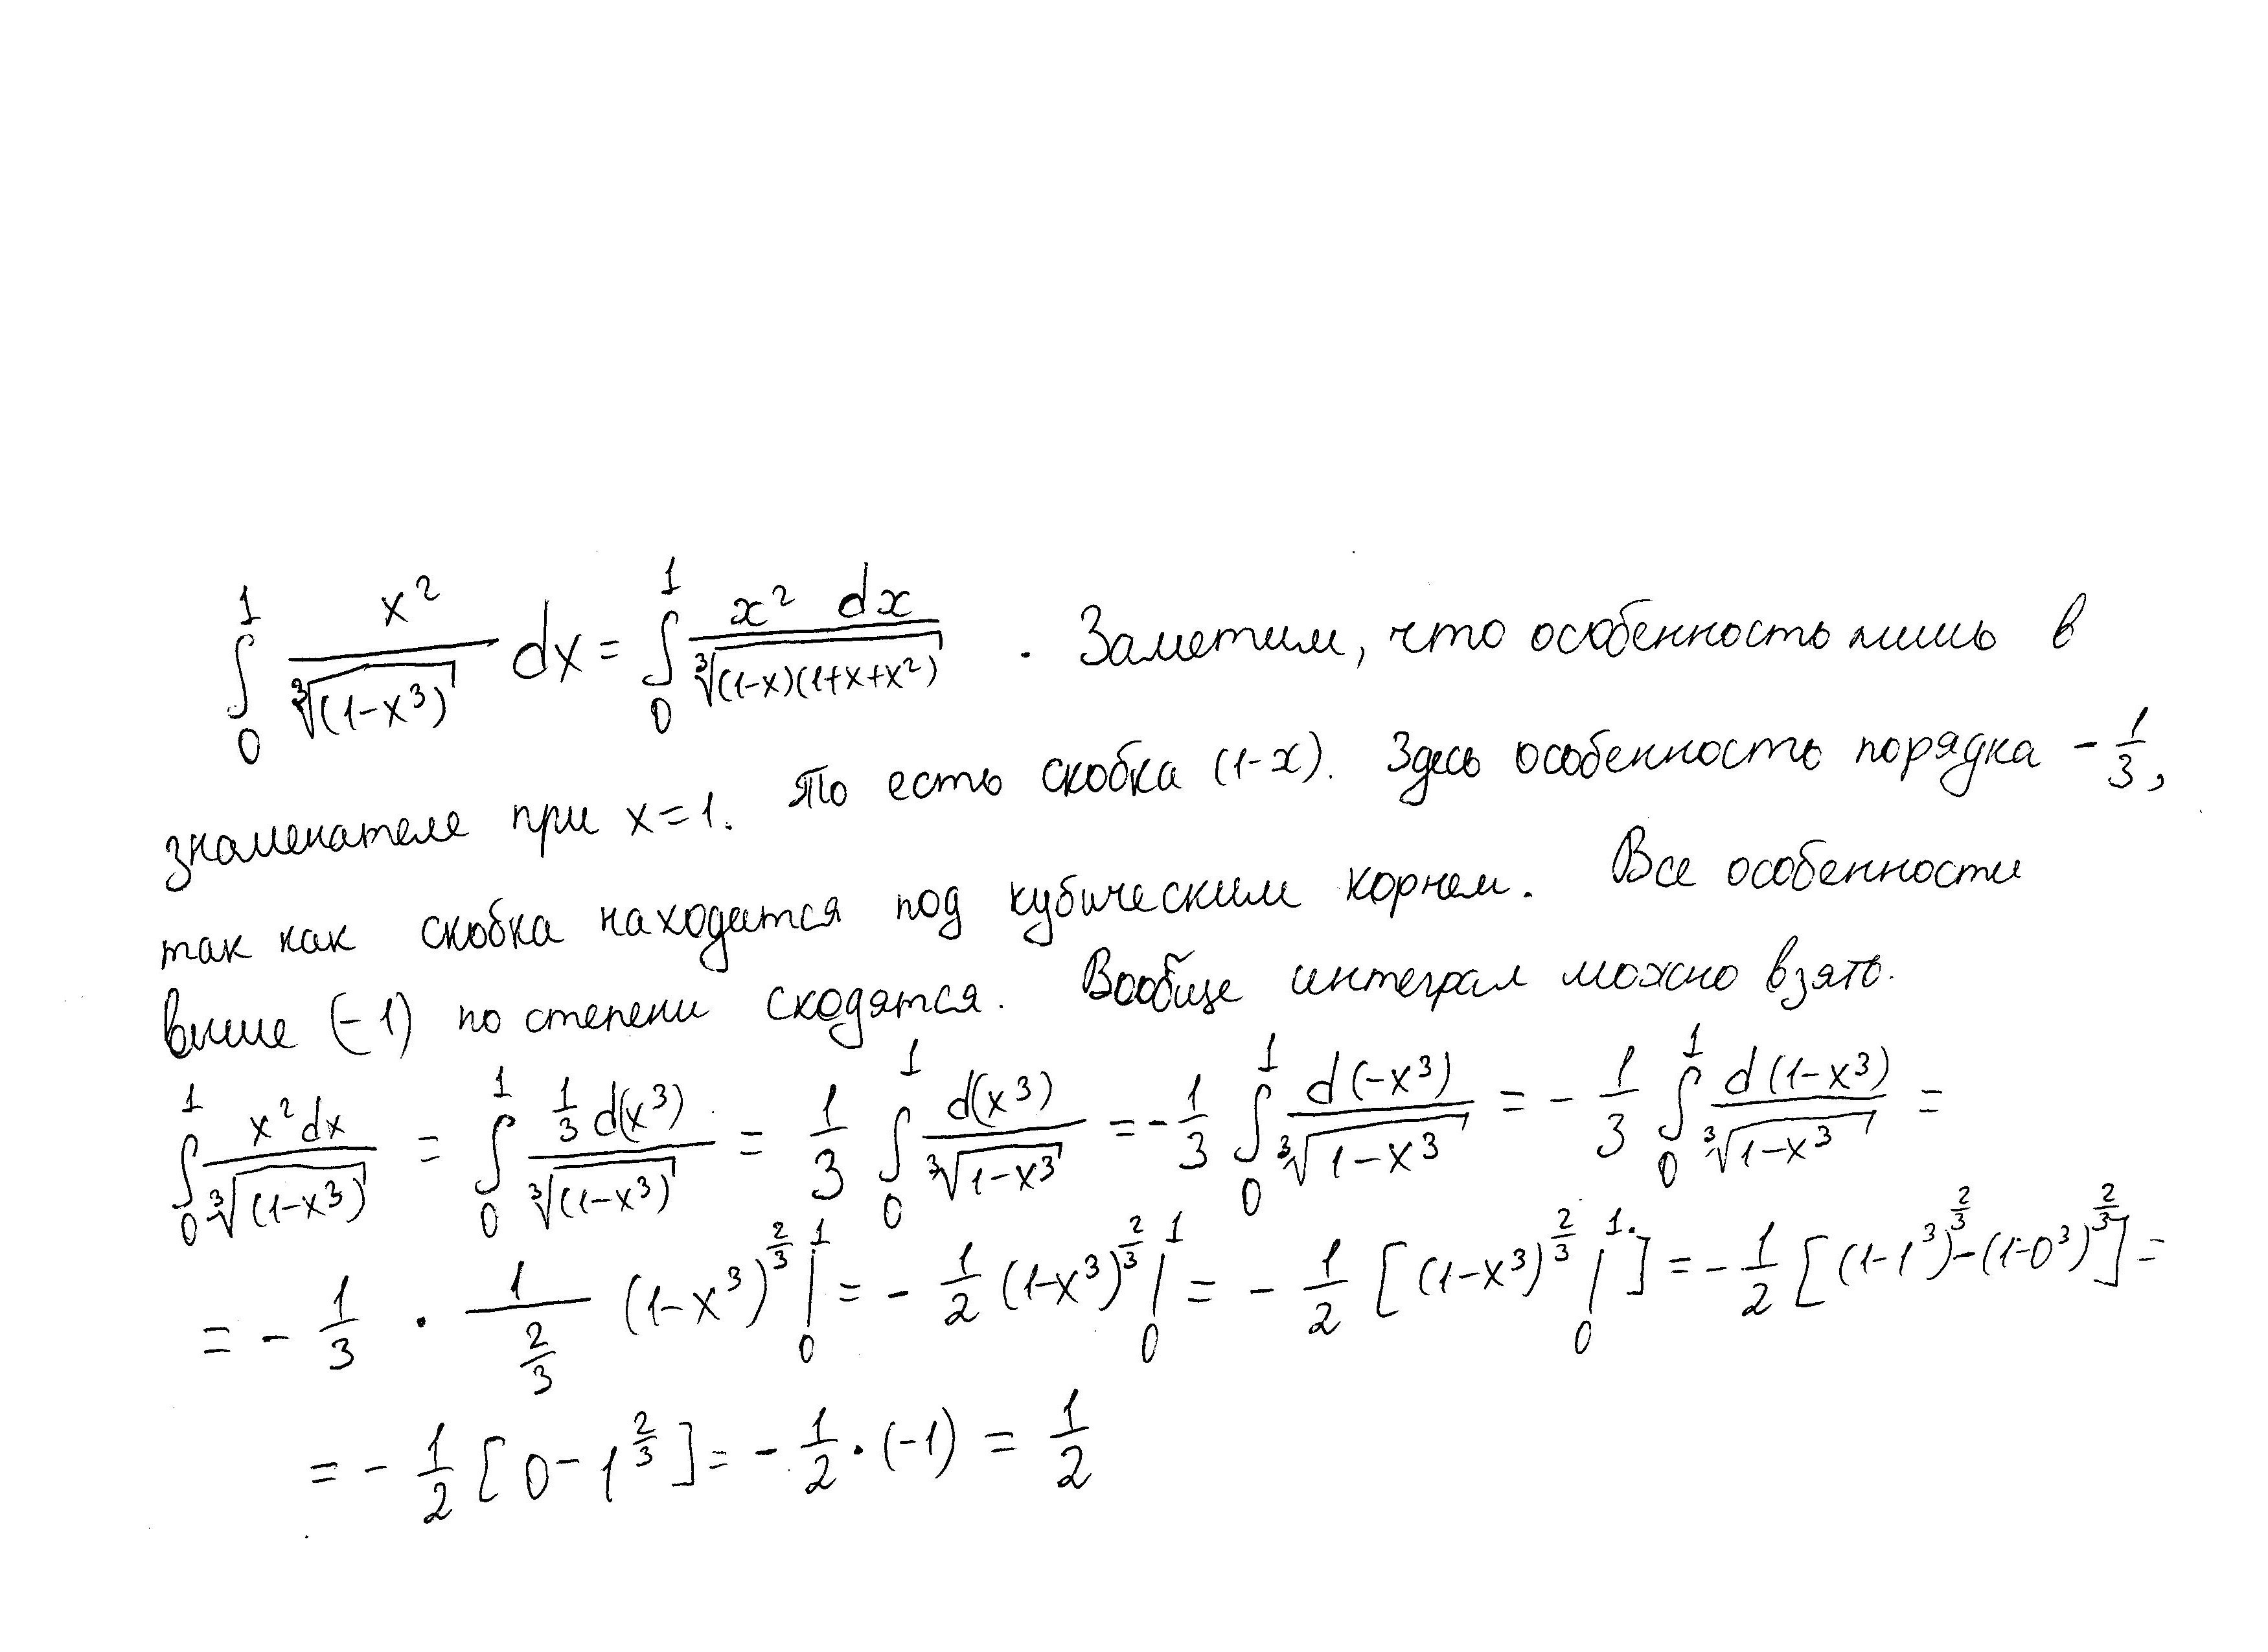 ∫₀¹ x²/∛(1-x³) dx = ∫₀¹ x² dx/∛((1-x)(1+x+x²)) . Заметим, что особенность лишь в
знаменателе при x=1. То есть скобка (1-x). Здесь особенность порядка -1/3,
так как скобка находится под кубическим корнем. Все особенности
выше (-1) по степени сходятся. Вообще интеграл можно взять.
∫₀¹ x²dx/∛(1-x³) = ∫₀¹ 1/3 d(x³)/∛(1-x³) = 1/3 ∫₀¹ d(x³)/∛(1-x³) = -1/3 ∫₀¹ d(-x³)/∛(1-x³) = -1/3 ∫₀¹ d(1-x³)/∛(1-x³) =
= -1/3 · 1/(2/3) (1-x³)^(2/3) |₀¹ = -1/2 (1-x³)^(2/3) |₀¹ = -1/2 [(1-x³)^(2/3) |₀¹] = -1/2 [(1-1³)^(2/3) - (1-0³)^(2/3)] =
= -1/2 [0-1^(2/3)] = -1/2 · (-1) = 1/2